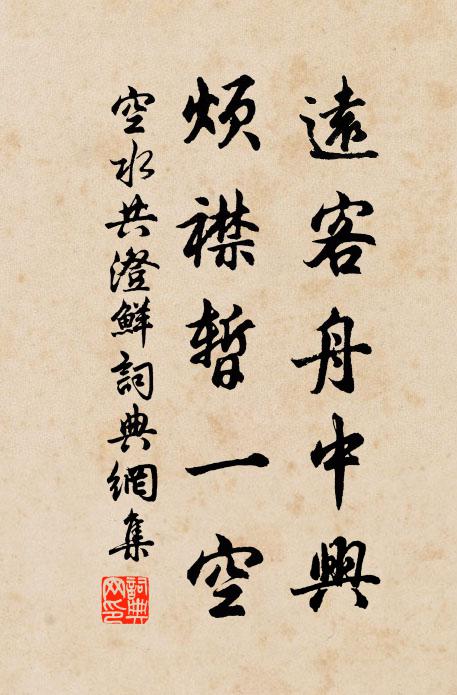 遠客舟中興
煩襟暫一空
空水共澄鮮詞典網集
詞典網印